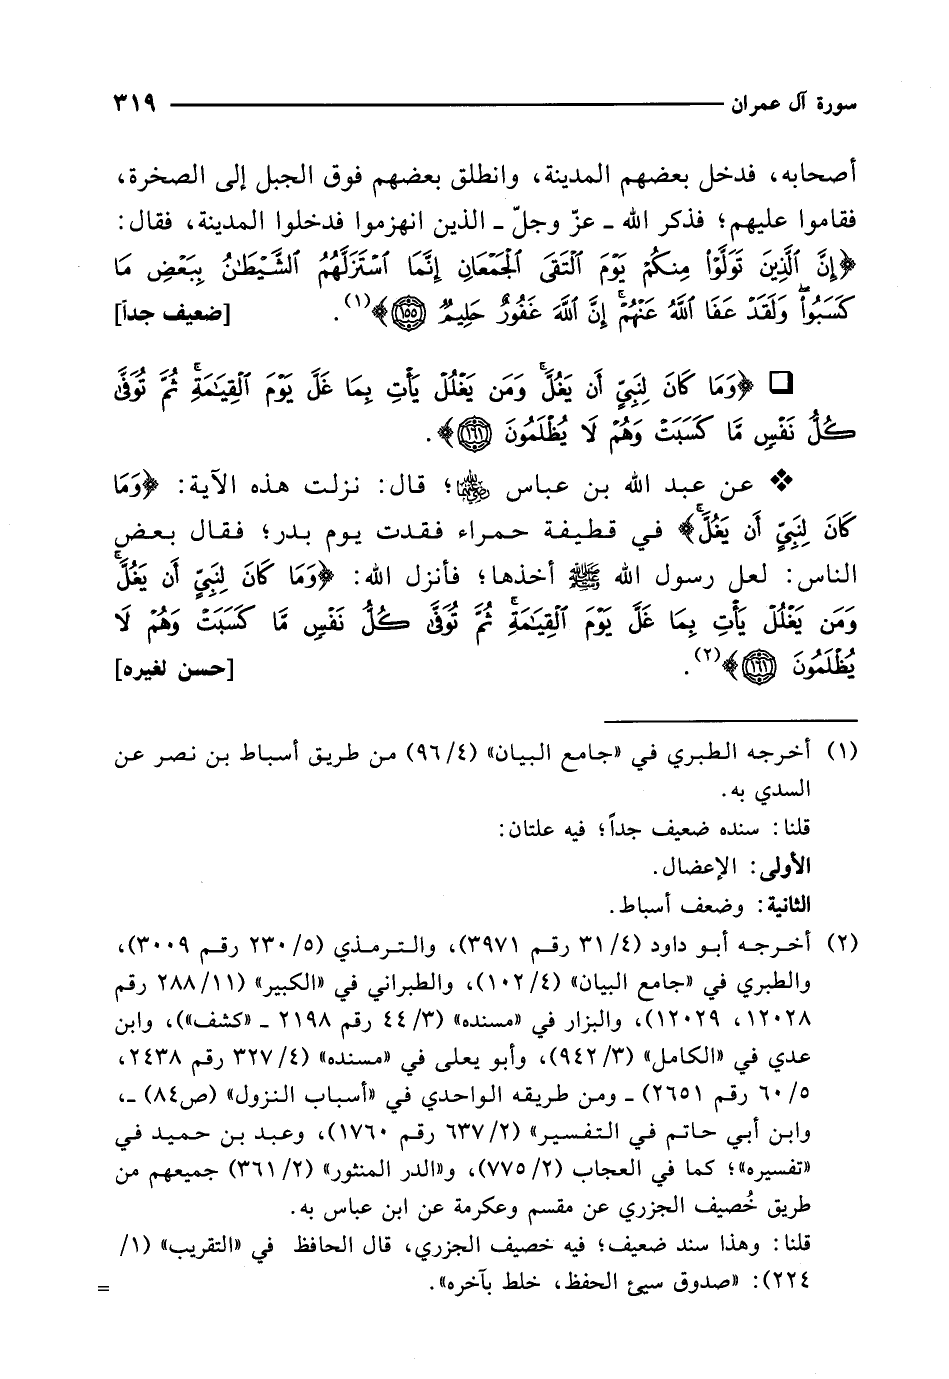 سورة آل عمران ٣١٩
أصحابه، فدخل بعضهم المدينة، وانطلق بعضهم فوق الجبل إلى الصخرة،
فقاموا عليهم؛ فذكر الله ـ عزّ وجلّ ـ الذين انهزموا فدخلوا المدينة، فقال:
﴿إِنَّ ٱلَّذِينَ تَوَلَّوْا۟ مِنكُمْ يَوْمَ ٱلْتَقَى ٱلْجَمْعَانِ إِنَّمَا ٱسْتَزَلَّهُمُ ٱلشَّيْطَٰنُ بِبَعْضِ مَا
كَسَبُوا۟ۖ وَلَقَدْ عَفَا ٱللَّهُ عَنْهُمْۗ إِنَّ ٱللَّهَ غَفُورٌ حَلِيمٌ ١٥٥﴾(١). [ضعيف جداً]
❑ ﴿وَمَا كَانَ لِنَبِيٍّ أَن يَغُلَّۚ وَمَن يَغْلُلْ يَأْتِ بِمَا غَلَّ يَوْمَ ٱلْقِيَٰمَةِۚ ثُمَّ تُوَفَّىٰ
كُلُّ نَفْسٍ مَّا كَسَبَتْ وَهُمْ لَا يُظْلَمُونَ ١٦١﴾.
❖ عن عبد الله بن عباس رضي الله عنهما؛ قال: نزلت هذه الآية: ﴿وَمَا
كَانَ لِنَبِيٍّ أَن يَغُلَّۚ﴾ في قطيفة حمراء فقدت يوم بدر؛ فقال بعض
الناس: لعل رسول الله ﷺ أخذها؛ فأنزل الله: ﴿وَمَا كَانَ لِنَبِيٍّ أَن يَغُلَّۚ
وَمَن يَغْلُلْ يَأْتِ بِمَا غَلَّ يَوْمَ ٱلْقِيَٰمَةِۚ ثُمَّ تُوَفَّىٰ كُلُّ نَفْسٍ مَّا كَسَبَتْ وَهُمْ لَا
يُظْلَمُونَ ١٦١﴾(٢). [حسن لغيره]
(١) أخرجه الطبري في «جامع البيان» (٤/ ٩٦) من طريق أسباط بن نصر عن
السدي به.
قلنا: سنده ضعيف جداً؛ فيه علتان:
الأولى: الإعضال.
الثانية: وضعف أسباط.
(٢) أخرجه أبو داود (٤/ ٣١ رقم ٣٩٧١)، والترمذي (٥/ ٢٣٠ رقم ٣٠٠٩)،
والطبري في «جامع البيان» (٤/ ١٠٢)، والطبراني في «الكبير» (١١/ ٢٨٨ رقم
١٢٠٢٨، ١٢٠٢٩)، والبزار في «مسنده» (٣/ ٤٤ رقم ٢١٩٨ ـ «كشف»)، وابن
عدي في «الكامل» (٣/ ٩٤٢)، وأبو يعلى في «مسنده» (٤/ ٣٢٧ رقم ٢٤٣٨،
٥/ ٦٠ رقم ٢٦٥١) ـ ومن طريقه الواحدي في «أسباب النزول» (ص٨٤) ـ،
وابن أبي حاتم في التفسير» (٢/ ٦٣٧ رقم ١٧٦٠)، وعبد بن حميد في
«تفسيره»؛ كما في العجاب (٢/ ٧٧٥)، و«الدر المنثور» (٢/ ٣٦١) جميعهم من
طريق خُصيف الجزري عن مقسم وعكرمة عن ابن عباس به.
قلنا: وهذا سند ضعيف؛ فيه خصيف الجزري، قال الحافظ في «التقريب» (١/
٢٢٤): «صدوق سيئ الحفظ، خلط بآخره».
=